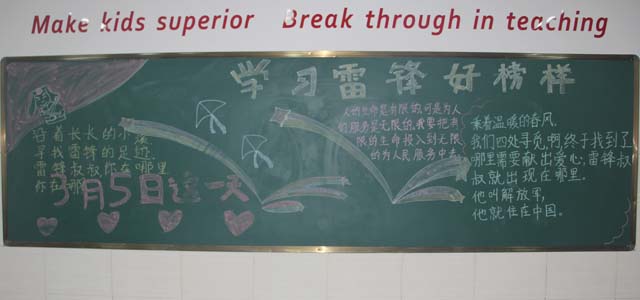 Make kids superior Break through in teaching
学习雷锋好榜样
沿着长长的小溪
寻找雷锋的足迹
雷锋叔叔你在哪里
你在哪
3月5日这一天
人的生命是有限的,可是为人
们服务是无限的,我要把有
限的生命投入到无限
的为人民服务中去
乘着温暖的春风,
我们四处寻觅,啊,终于找到了,
哪里需要献出爱心,雷锋叔
叔就出现在哪里.
他叫解放军,
他就住在中国。